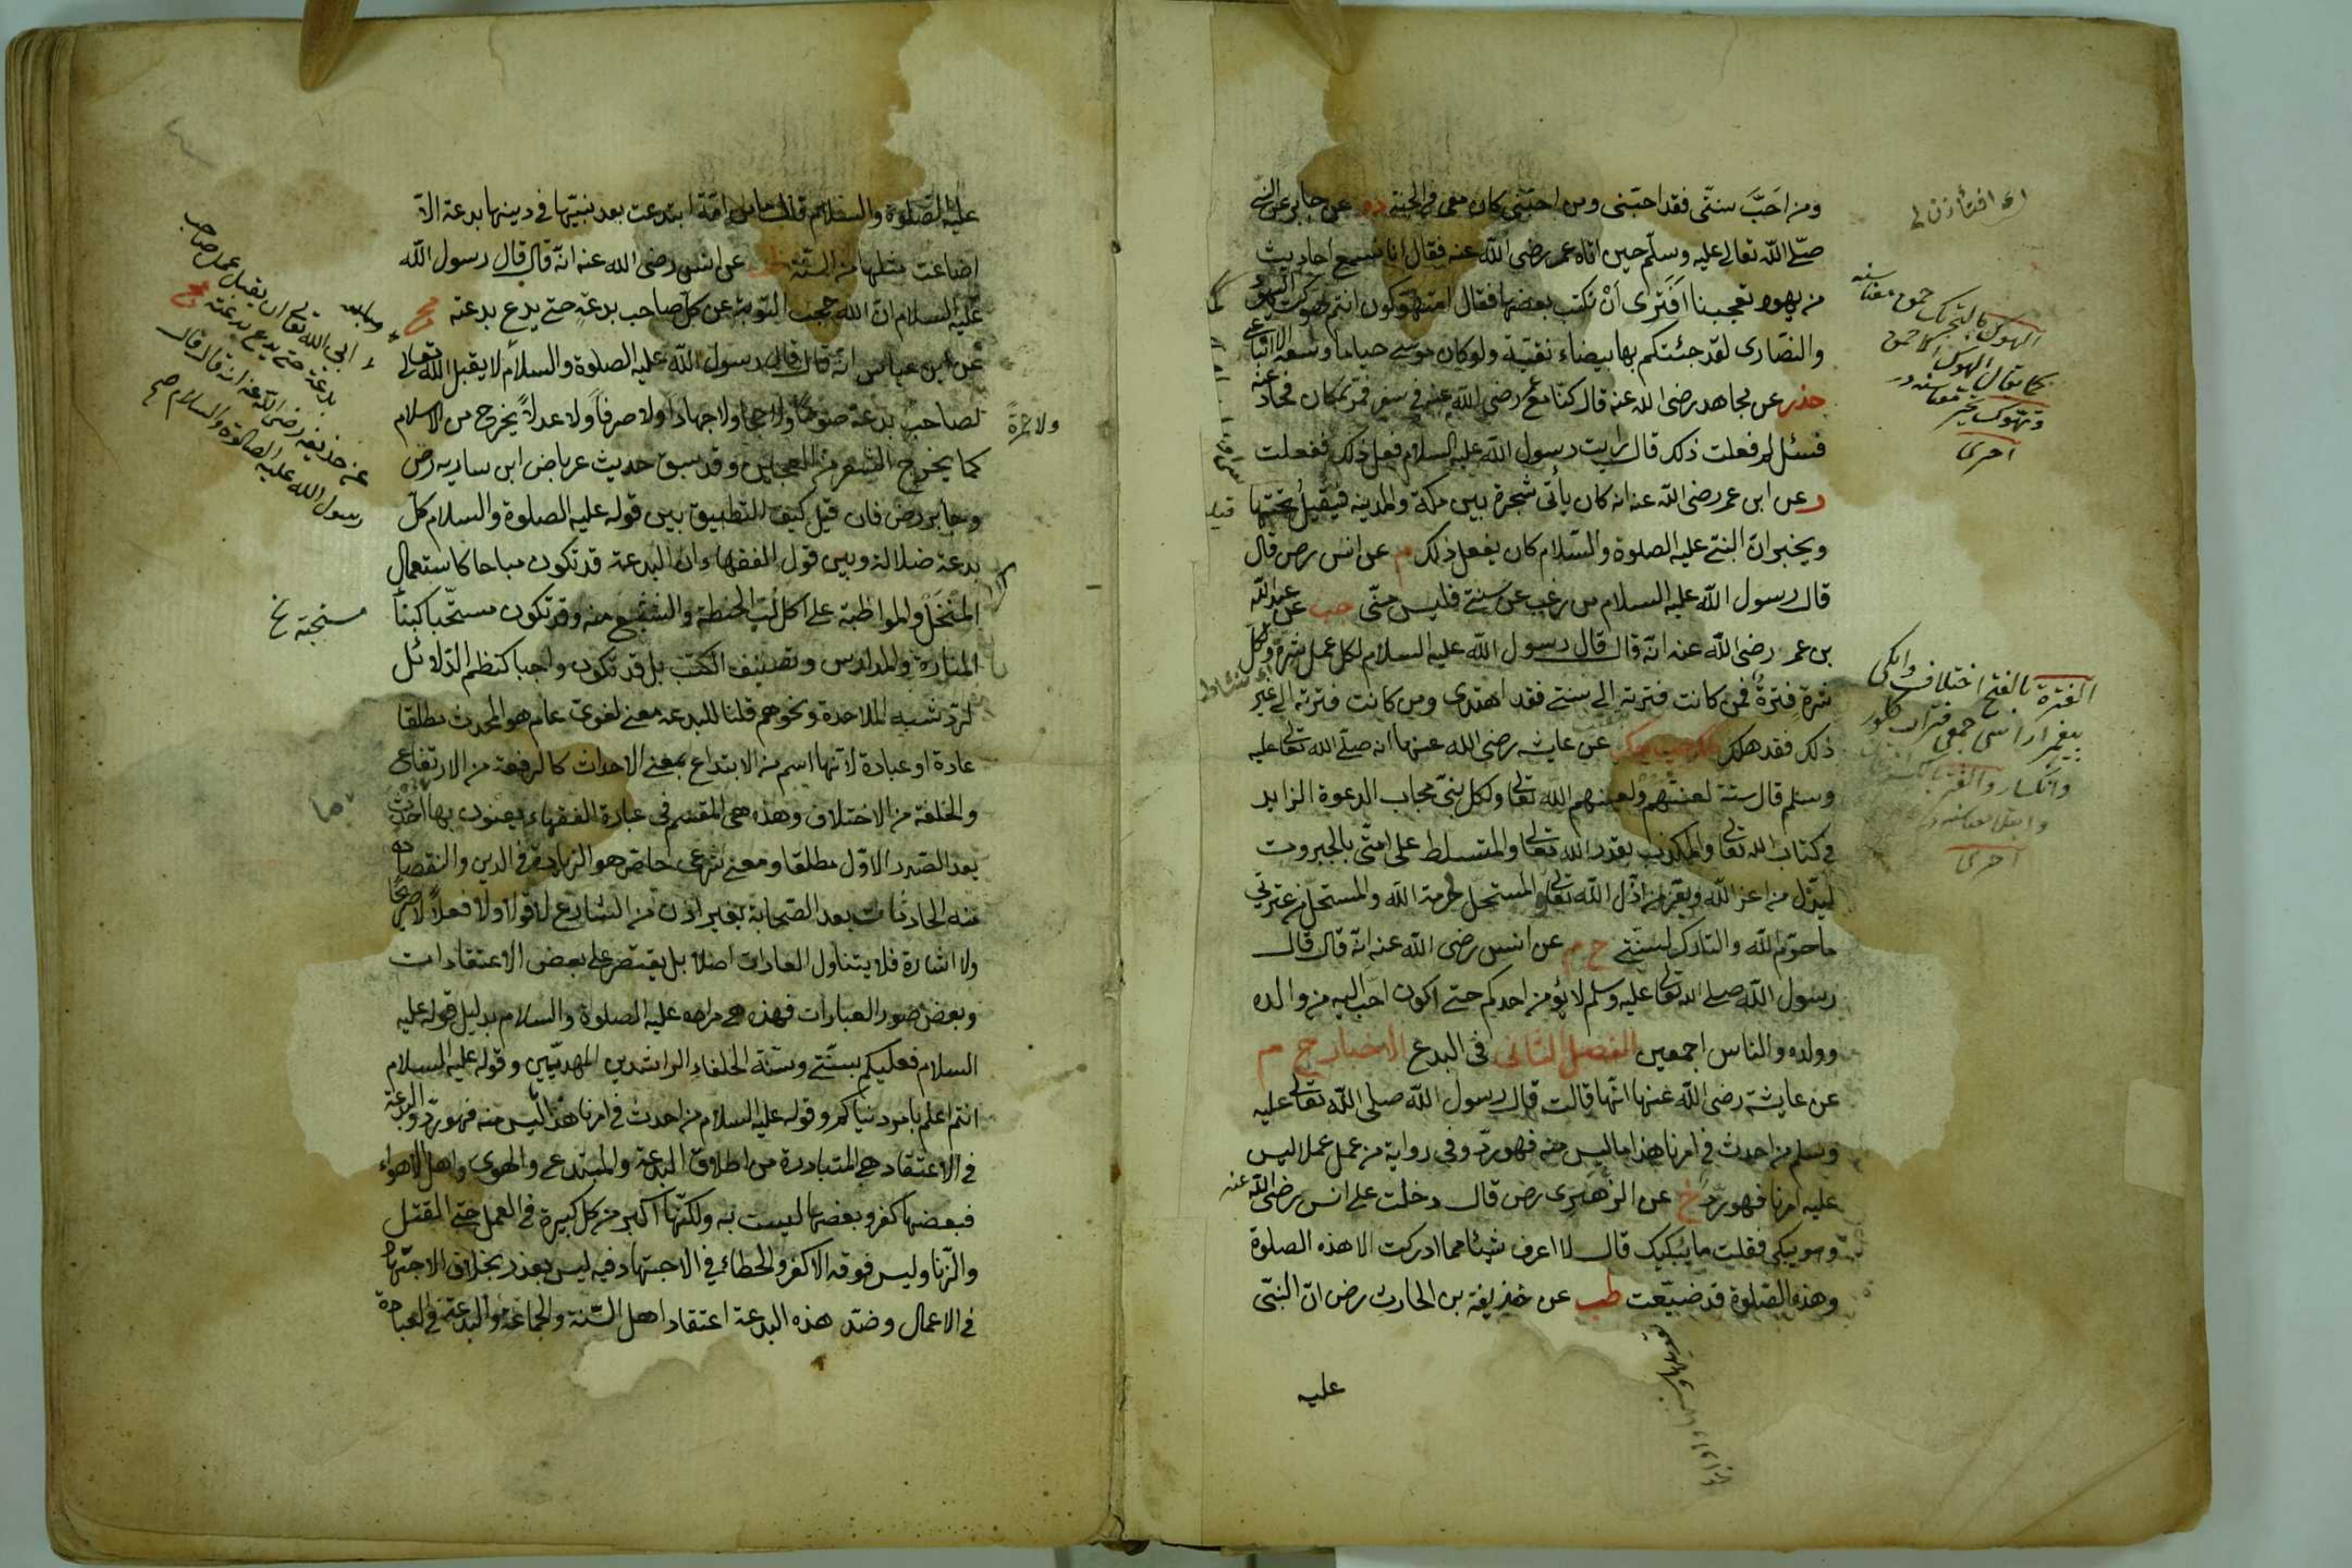 ومن احَبَّ سنتى فقد احبنى ومن احبنى كان معى فى الجنة عن جابر عن النبى
صلى الله تعالى عليه وسلم حين اتاه عمر رضى الله عنه فقال انا نسمع احاديث
من يهود تعجبنا افترى ان نكتب بعضها فقال امتهوكون انتم كما تهوكت اليهود
والنصارى لقد جئتكم بها بيضاء نقية ولو كان موسى حيا ما وسعه الا اتباعى
حذر عن مجاهد رضى الله عنه قال كنا مع عمر رضى الله عنه فى سفر فمر بمكان فحاد عنه
فسئل لم فعلت ذلك قال رايت رسول الله عليه السلام فعل ذلك ففعلت
ر عن ابن عمر رضى الله عنه انه كان يأتى شجرة بين مكة والمدينه فيقيل تحتها
ويخبر ان النبى عليه الصلوة والسلام كان يفعل ذلك م عن انس رض قال
قال رسول الله عليه السلام من رغب عن سنتى فليس منى حب عن عبد الله
بن عمر رضى الله عنه انه قال قال رسول الله عليه السلام لكل عمل شرة ولكل
شرة فترة فمن كانت فترته الى سنتى فقد اهتدى ومن كانت فترته الى غير
ذلك فقد هلك عن عايشه رضى الله عنها انه صلى الله تعالى عليه
وسلم قال ستة لعنتهم ولعنهم الله تعالى وكل نبى مجاب الدعوة الزايد
فى كتاب الله تعالى والمكذب بقدر الله تعالى والمتسلط على امتى بالجبروت
ليذل من اعز الله ويعز من اذل الله تعالى والمستحل لحرمة الله والمستحل من عترتى
ما حرم الله والتارك لسنتى خ م عن انس رضى الله عنه انه قال قال
رسول الله صلى الله تعالى عليه وسلم لا يؤمن احدكم حتى اكون احب اليه من والده
وولده والناس اجمعين الفصل الثانى فى البدع الاخبار خ م
عن عايشة رضى الله عنها انها قالت قال رسول الله صلى الله تعالى عليه
وسلم من احدث فى امرنا هذا ما ليس منه فهو رد وفى رواية من عمل عملا ليس
عليه امرنا فهو رد خ عن الزهرى رض قال دخلت على انس رضى الله عنه
وهو يبكى فقلت ما يبكيك قال لا اعرف شيئا مما ادركت الا هذه الصلوة
وهذه الصلوة قد ضيعت طب عن غضيف بن الحارث رض ان النبى
عليه
الهوك بالتحريك حمق معناسنه
كما يقال الهوك الاحمق
وتهوك تحير معناسنه در
اخرى
الفترة بالفتح اختلاف وايكى
اخرى
عليه الصلوة والسلام قال ما من امة ابتدعت بعد نبيها فى دينها بدعة الا
اضاعت مثلها من السنة عن انس رضى الله عنه انه قال قال رسول الله
عليه السلام ان الله حجب التوبة عن كل صاحب بدعة حتى يدع بدعته مج
عن ابن عباس انه قال قال رسول الله عليه الصلوة والسلام لا يقبل الله تعالى
لصاحب بدعة صوما ولا حجا ولا جهادا ولا صرفا ولا عدلا يخرج من الاسلام
ولا عمرة
كما يخرج الشعر من العجين وقد سبق حديث عرباض ابن ساريه رض
وجابر رض فان قيل كيف التطبيق بين قوله عليه الصلوة والسلام كل
بدعة ضلالة وبين قول الفقهاء ان البدعة قد تكون مباحا كاستعمال
المنخل والمواظبة على اكل لب الحنطة والشبع منه وقد تكون مستحبا كبناء
المنارة والمدارس وتصنيف الكتب بل قد تكون واجبا كنظم الدلائل
لرد شبه الملاحدة ونحوهم قلنا للبدعة معنى لغوى عام هو المحدث مطلقا
عادة او عبادة لانها اسم من الابتداع بمعنى الاحداث كالرفعة من الارتفاع
والخلفة من الاختلاف وهذه هى المقسم فى عبارة الفقهاء يعنون بها ما احدث
بعد الصدر الاول مطلقا ومعنى شرعى خاص هو الزيادة فى الدين والنقصان
منه الحادثان بعد الصحابة بغير اذن من الشارع لا قولا ولا فعلا لا صريحا
ولا اشارة فلا يتناول العادات اصلا بل يقتصر على بعض الاعتقادات
وبعض صور العبادات فهذه هى مراده عليه الصلوة والسلام بدليل قوله عليه
السلام فعليكم بسنتى وسنة الخلفاء الراشدين المهديين وقوله عليه السلام
انتم اعلم بامور دنياكم وقوله عليه السلام من احدث فى امرنا هذا ما ليس منه فهو رد والبدعة
فى الاعتقاد هى المتبادرة من اطلاق البدعة والمبتدع والهوى واهل الاهواء
فبعضها كفر وبعضها ليست به ولكنها اكبر من كل كبيرة فى العمل حتى القتل
والزنا وليس فوقه الا كفر والخطاء فى الاجتهاد فيه ليس بعذر بخلاف الاجتهاد
فى الاعمال وضد هذه البدعة اعتقاد اهل السنة والجماعة والبدعة فى العبادة
ابى الله تعالى ان يقبل عمل صاحب
بدعة حتى يدع بدعته مج
عن حذيفه رضى الله عنه انه قال قال
رسول الله عليه الصلوة والسلام صح
مستحبة خ